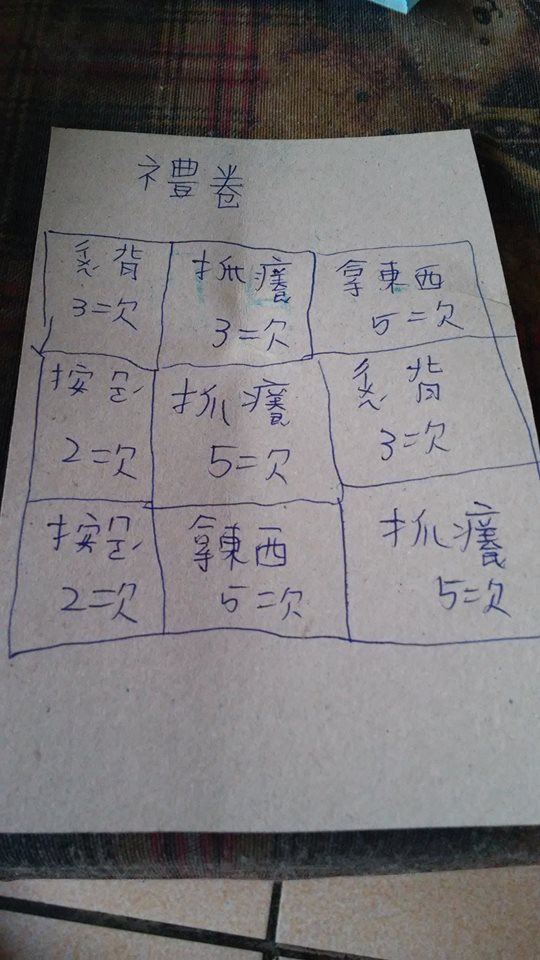 禮卷
背
3次
抓癢
3次
拿東西
5次
按足
2次
抓癢
5次
背
3次
按足
2次
拿東西
5次
抓癢
5次